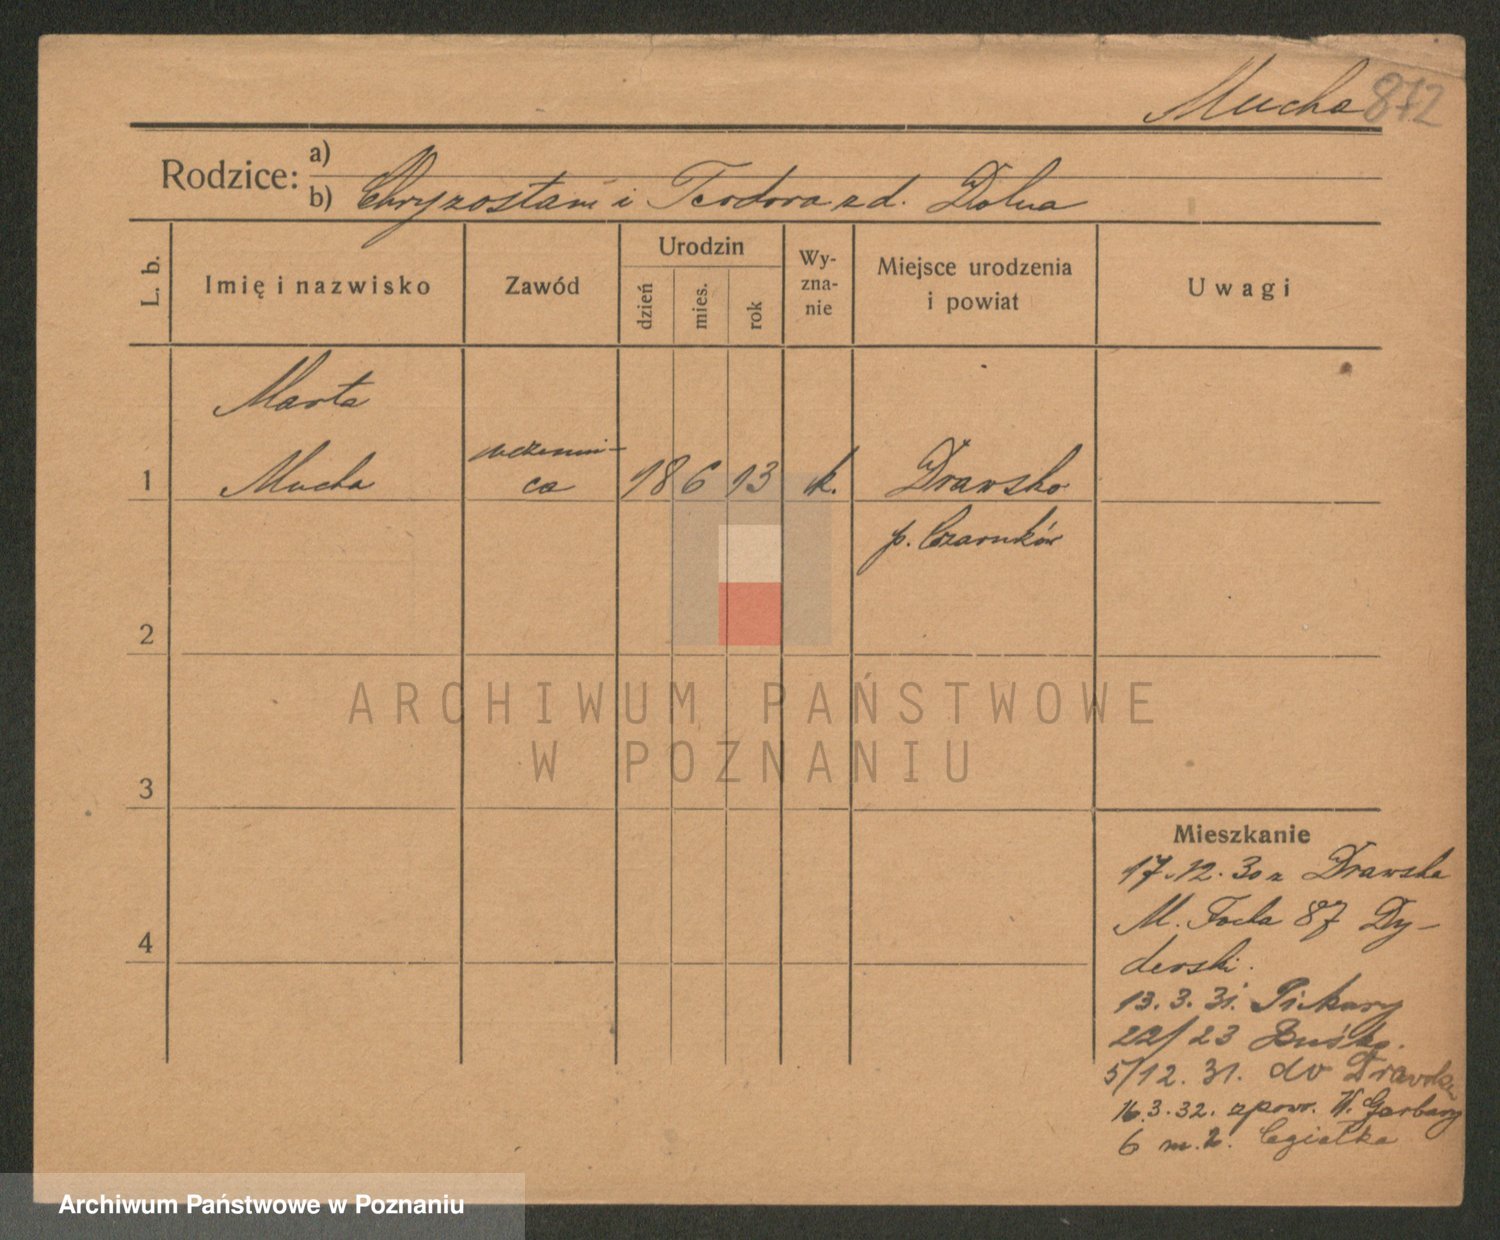 Mucha 872
Rodzice: a)
b) Chryzostam i Teodora zd. Dolna
L. b.
Imię i nazwisko
Zawód
Urodzin
dzień
mies.
rok
Wy-
zna-
nie
Miejsce urodzenia
i powiat
Uwagi
Marta
1 Mucha uczenni-
ca 18 6 13 k. Drawsko
p. Czarnków
2
3
4
ARCHIWUM PAŃSTWOWE
W POZNANIU
Mieszkanie
17.12.30 z Drawska
M. Focha 87 Dy-
derski.
13.3.31. Piekary
22/23
5/12.31. do Drawska
16.3.32. zpowr. W. Garbary
6 m. 2. Cegiełka
Archiwum Państwowe w Poznaniu